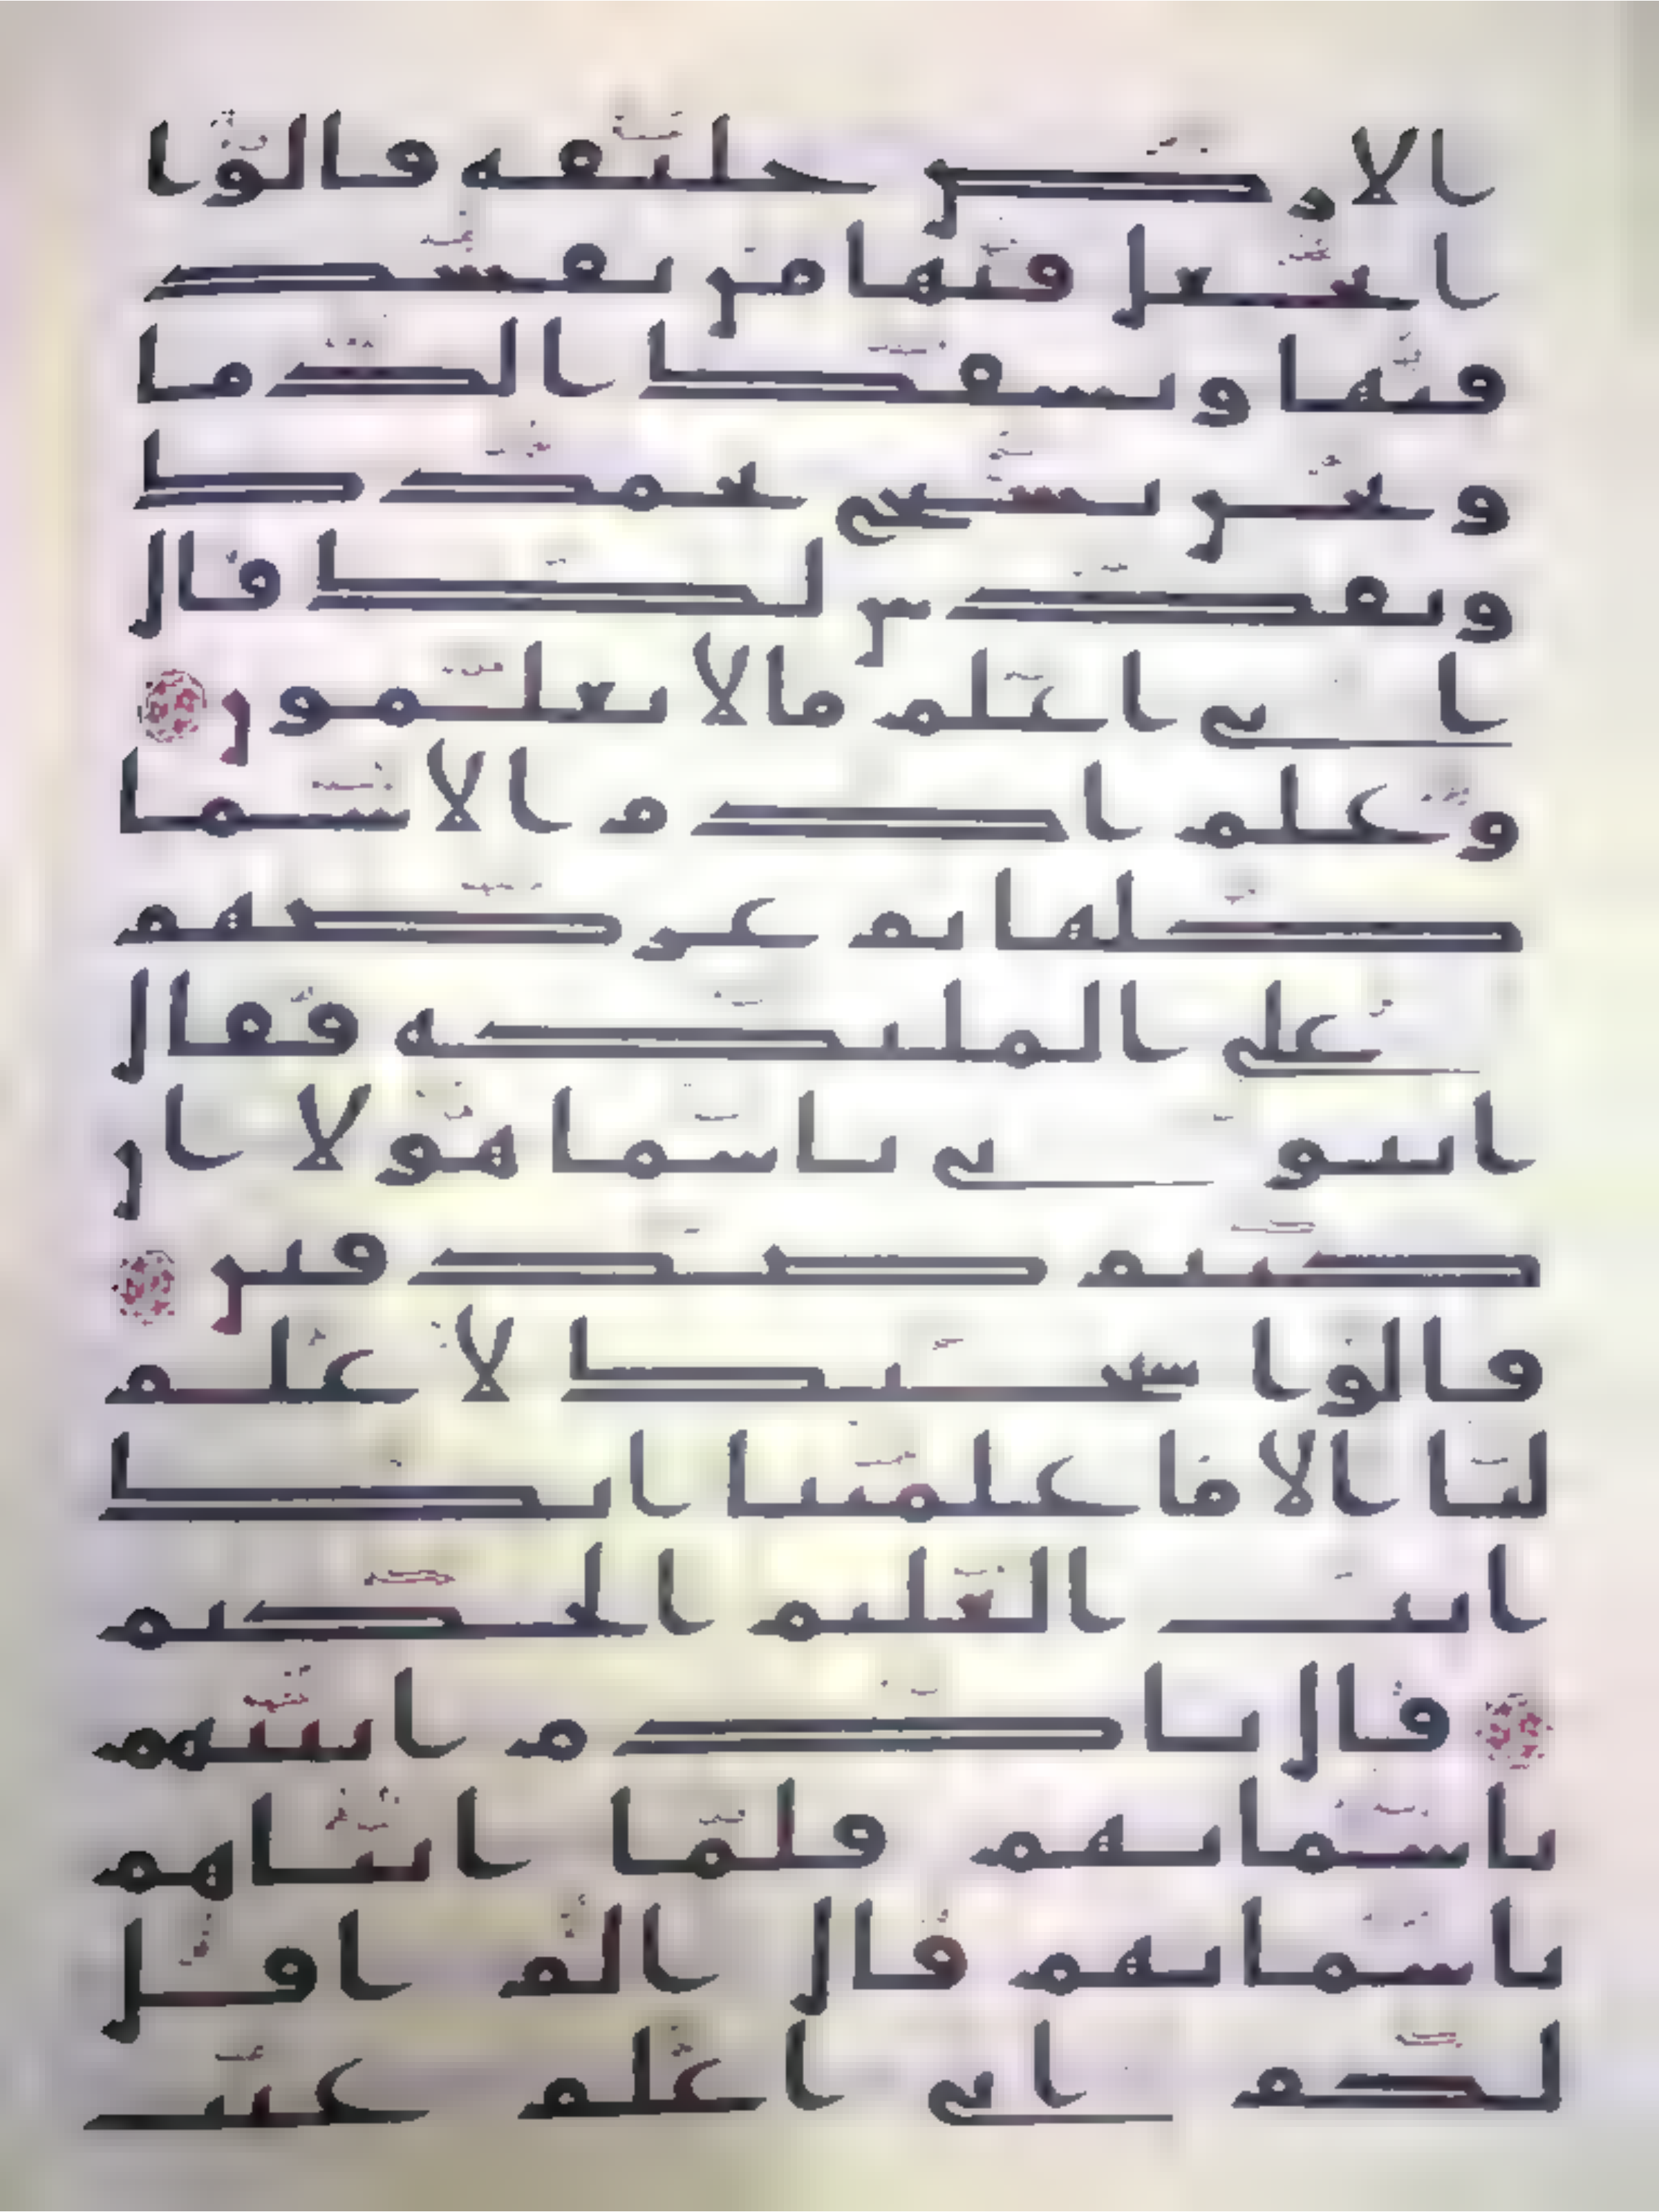 الارض خليفه قالوا
اتجعل فيها من يفسد
فيها ويسفك الدما
ونحن نسبح بحمدك
ونقدس لك قال
انى اعلم ما لا تعلمون
وعلم ادم الاسما
كلها ثم عرضهم
على الملىكه فقال
انبونى باسما هولا ان
كنتم صدقين
قالوا سبحنك لا علم
لنا الا ما علمتنا انك
انت العليم الحكيم
قال يادم انبيهم
باسمايهم فلما انباهم
باسمايهم قال الم اقل
لكم انى اعلم غيب